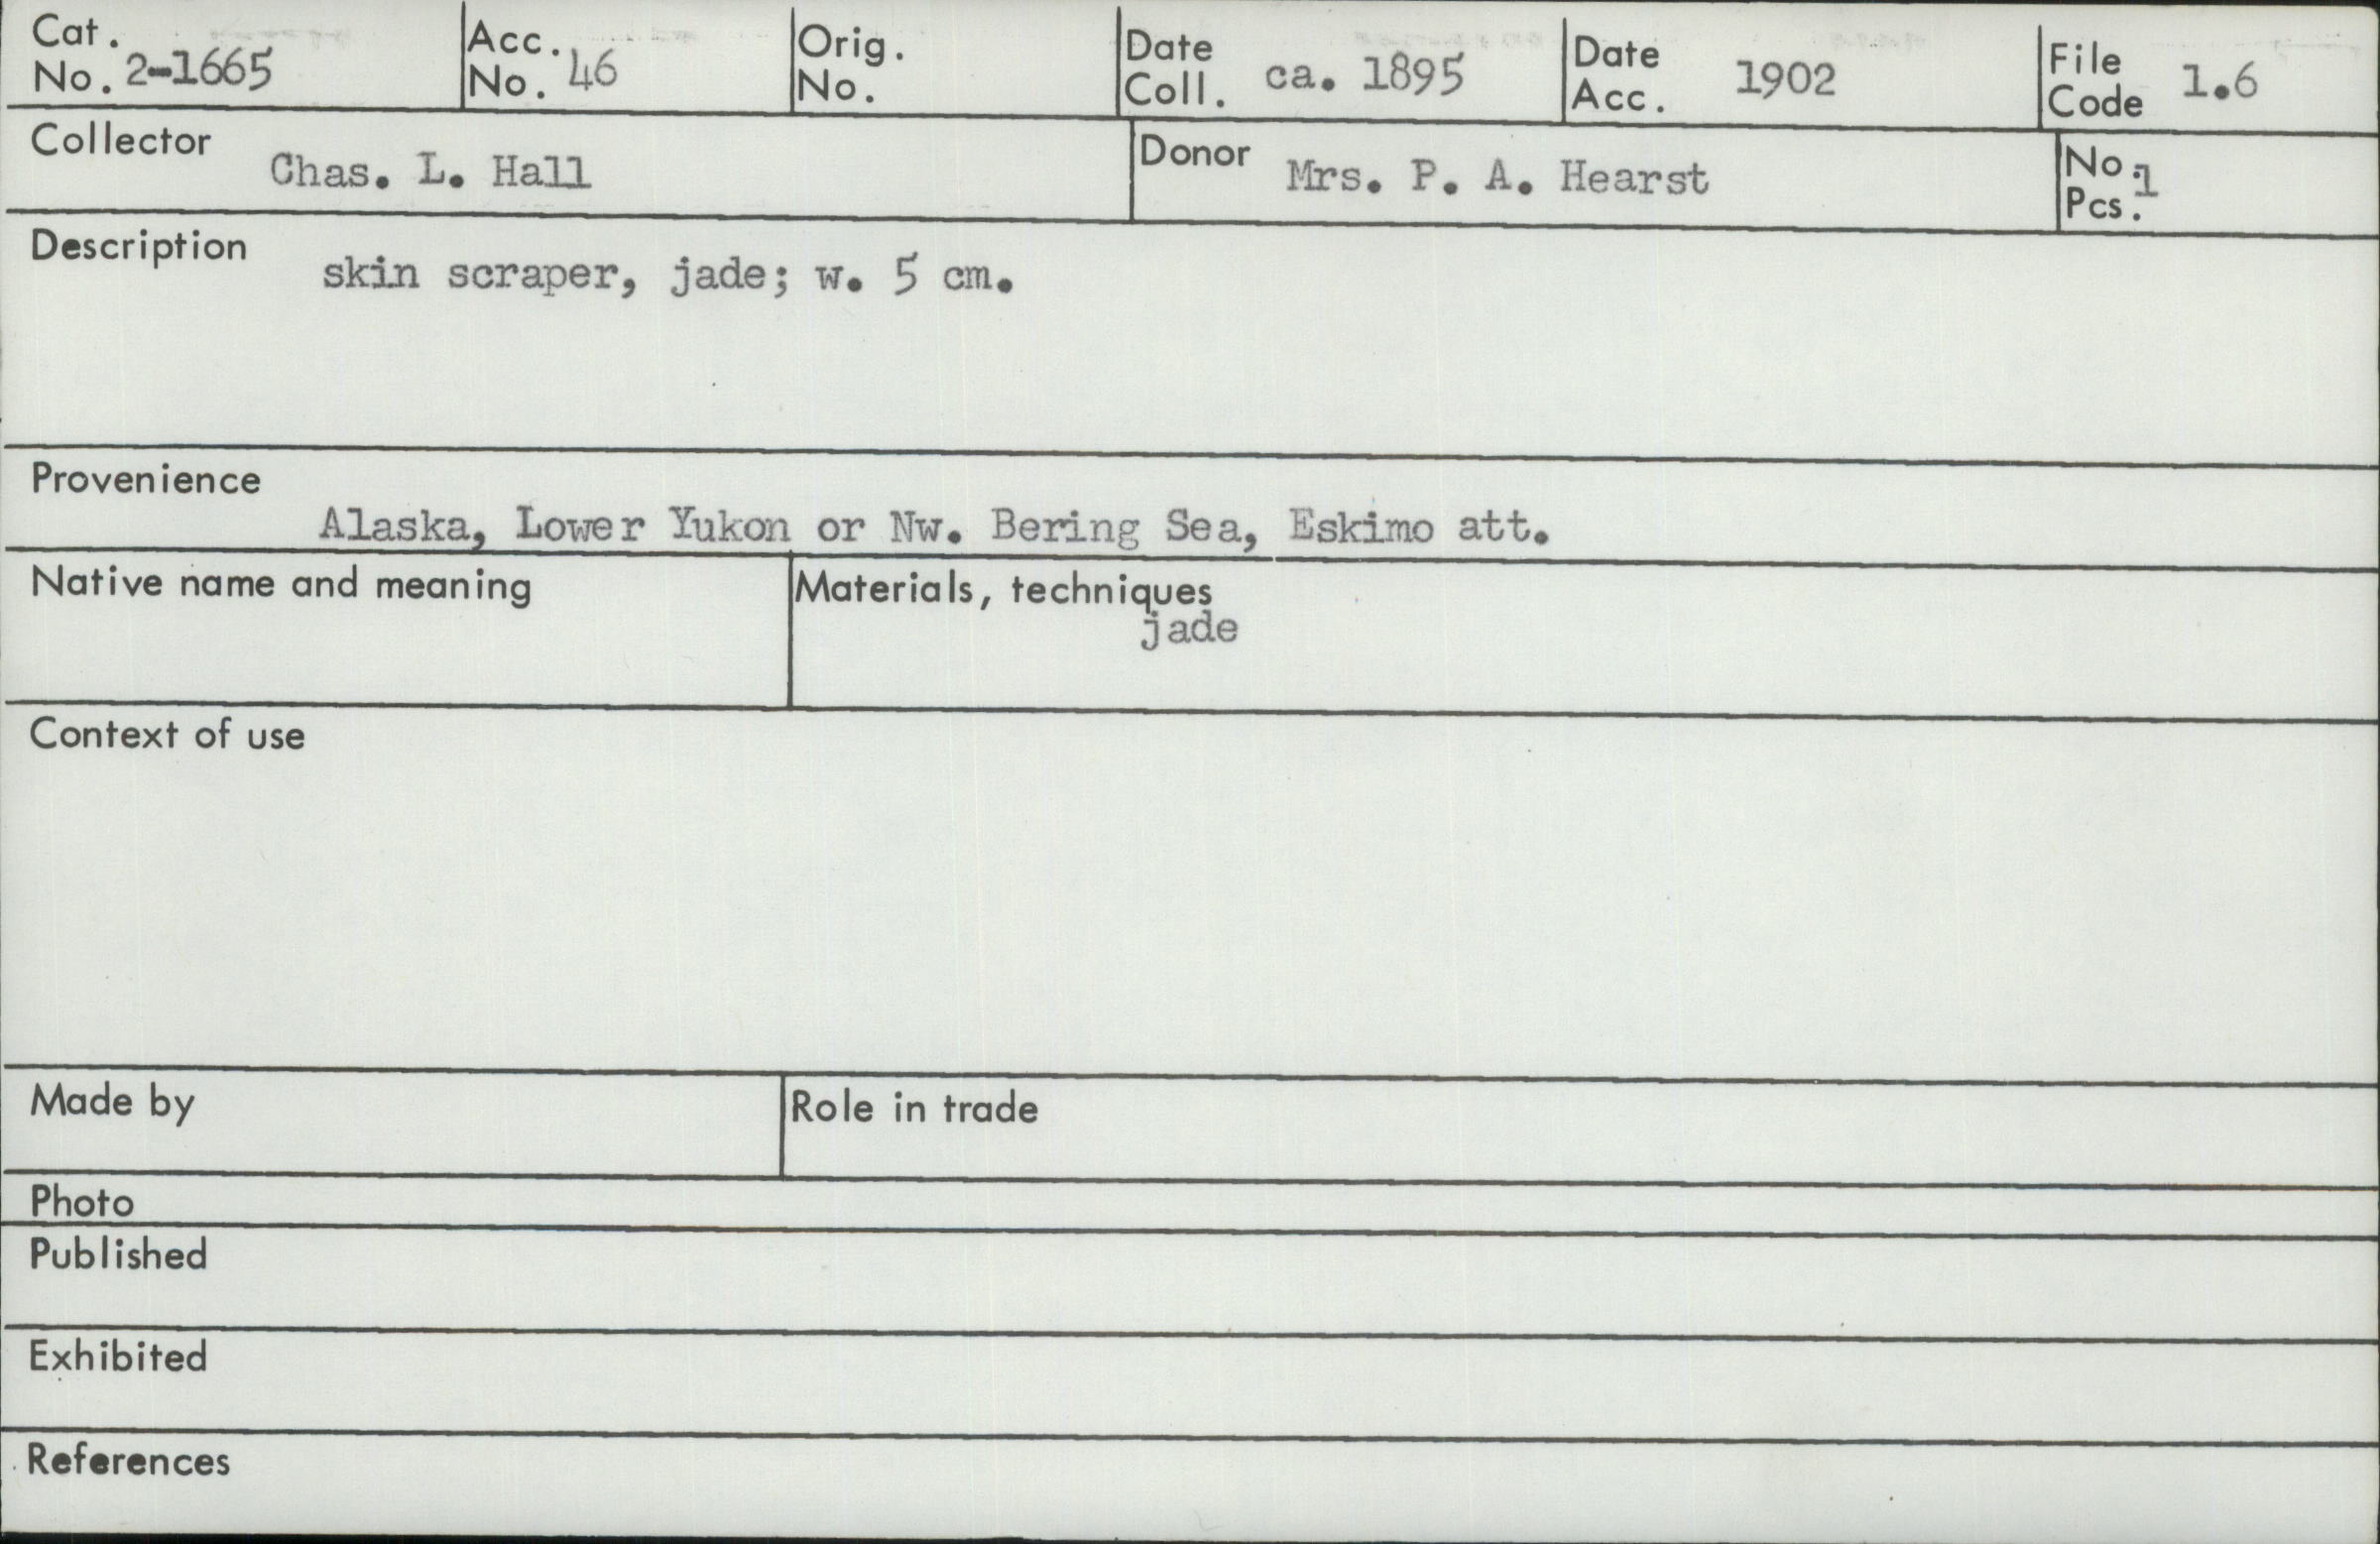 Cat. No. 2-1665 Acc. No. 46 Orig. No. Date Coll. ca. 1895 Date Acc. 1902 File Code 1.6
Collector Chas. L. Hall Donor Mrs. P. A. Hearst No. Pcs. 1
Description skin scraper, jade; w. 5 cm.
Provenience
Alaska, Lower Yukon or Nw. Bering Sea, Eskimo att.
Native name and meaning Materials, techniques
jade
Context of use
Made by Role in trade
Photo
Published
Exhibited
References